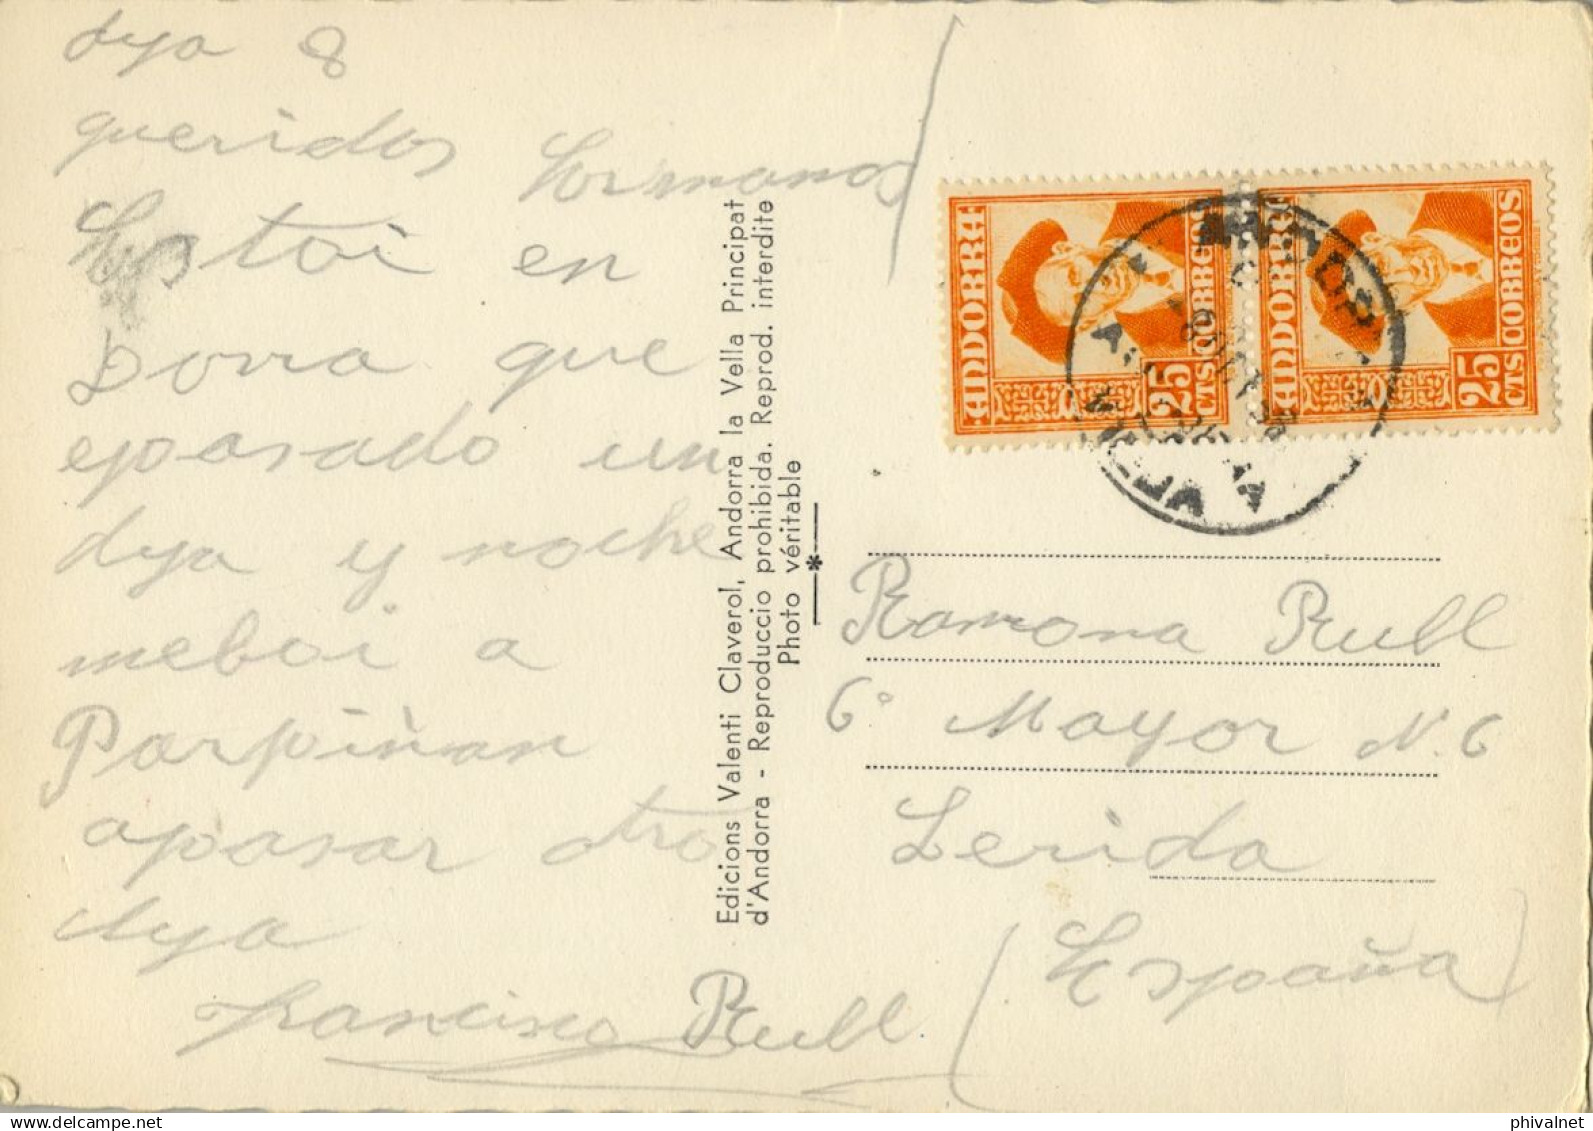 dya 8
queridos hermanos
Estoi en
Dorra que
epasado un
dya y noche
meboi a
Parpiñan
apasar otro
dya
Francisco Rull
Edicions Valenti Claverol, Andorra la Vella Principat
d'Andorra - Reproduccio prohibida. Reprod. interdite
Photo véritable
ANDORRA
CORREOS
25 CTS
ANDORRA
CORREOS
25 CTS
ANDORRA
VIEJA
Ramona Rull
C° Mayor N. 6
Lerida
(España)
www.delcampe.net
phivalnet